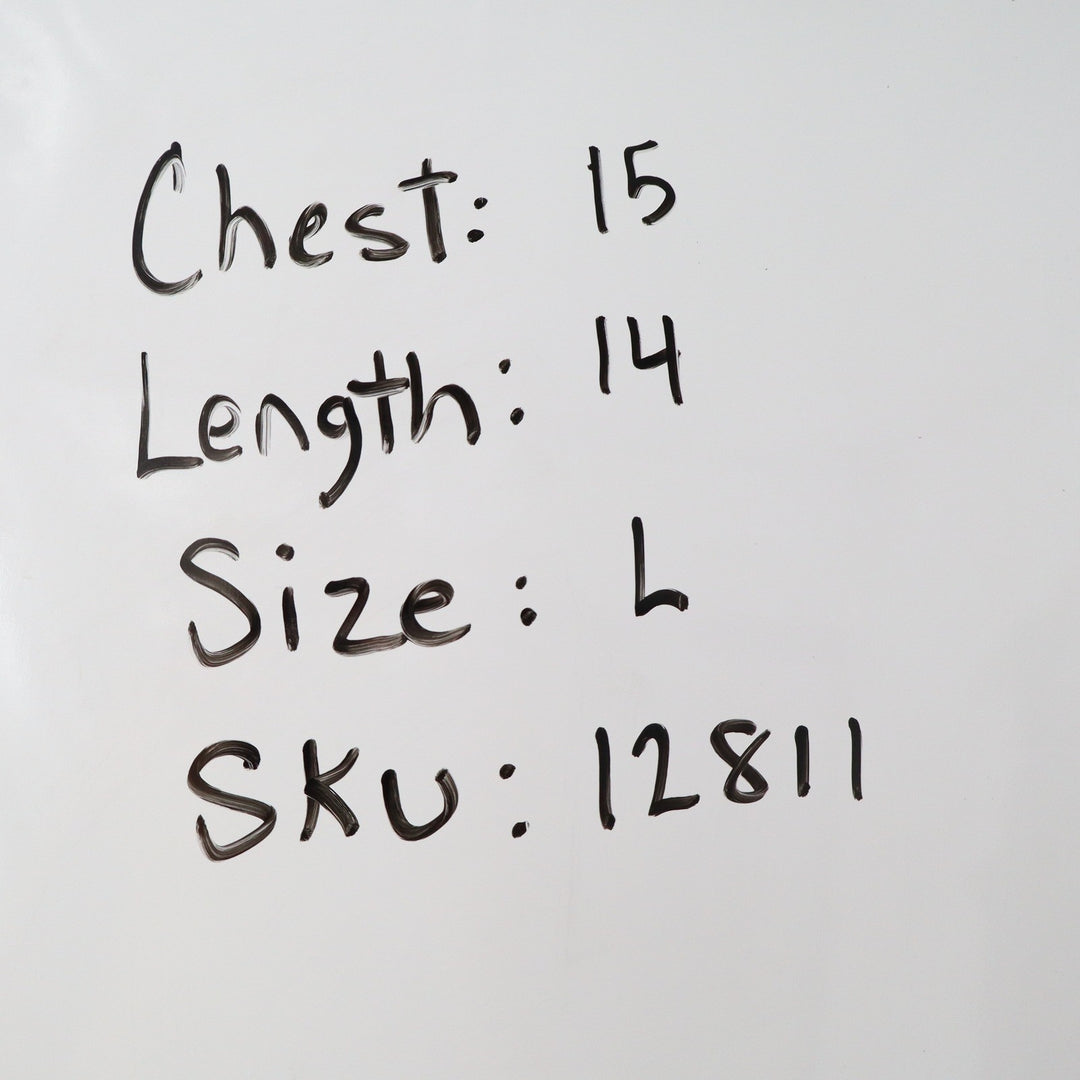 Chest: 15
Length: 14
Size: L
SKU: 12811